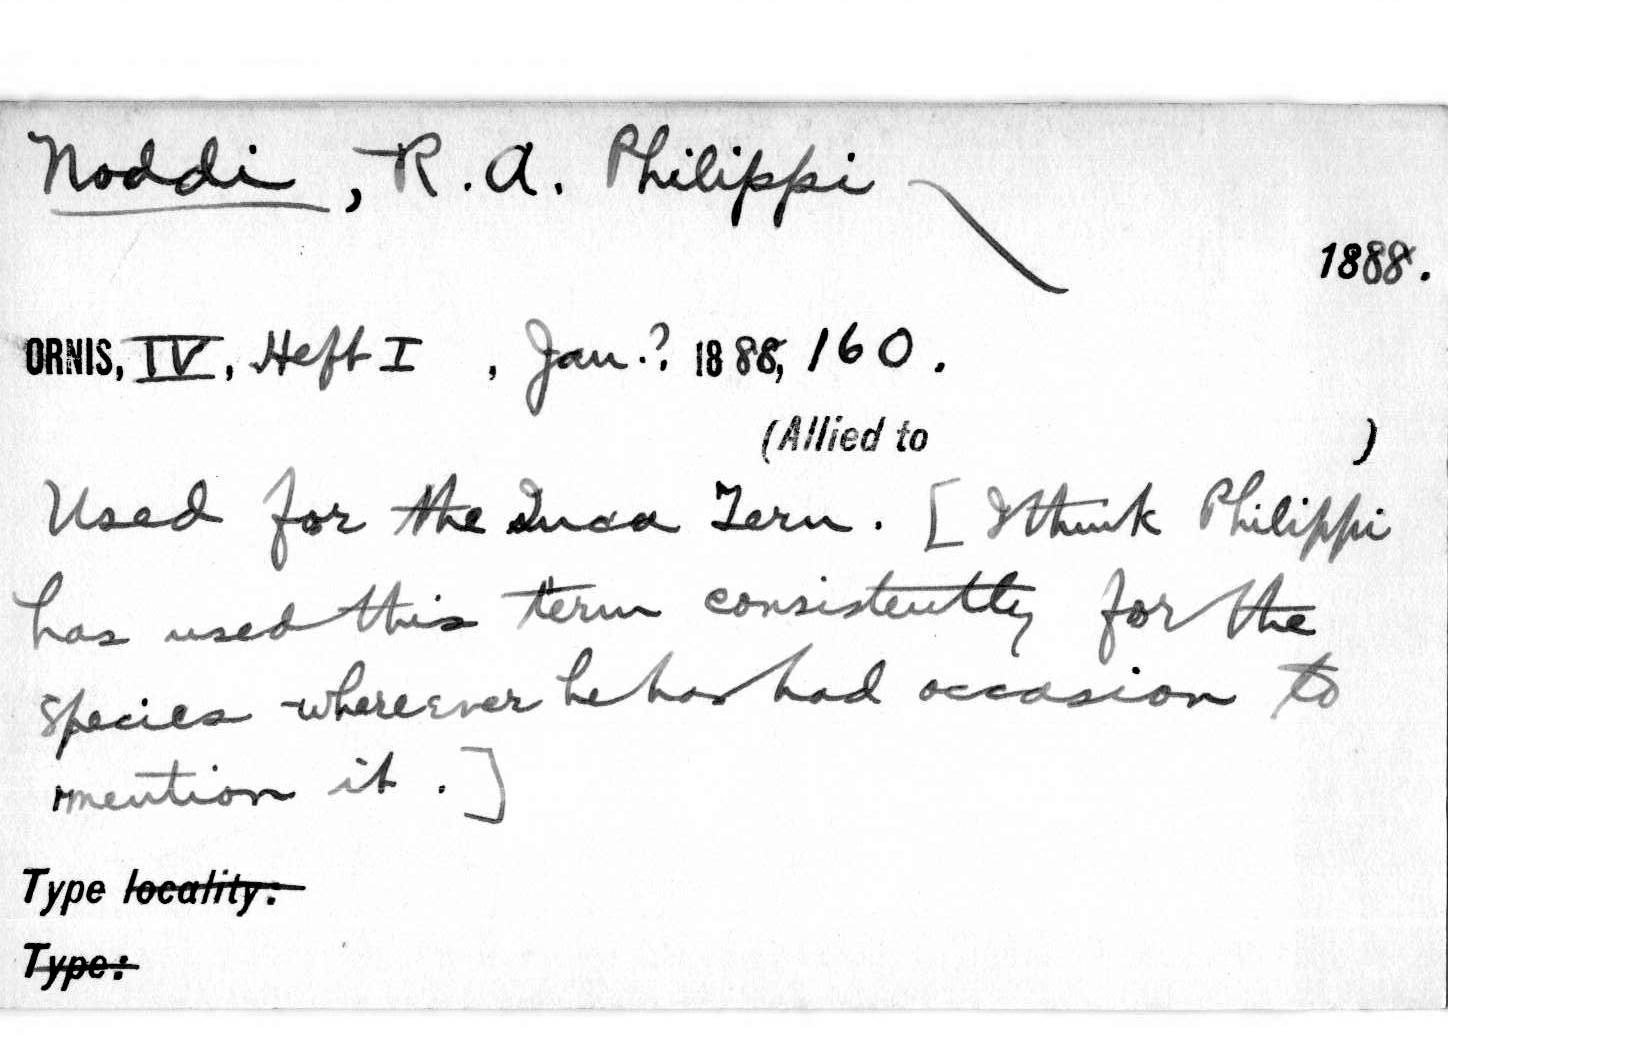 Noddi, R. A. Philippi
1888.
ORNIS, IV, Heft I , Jan.? 1888, 160.
(Allied to )
Used for the Inca Tern. [I think Philippi
has used this term consistently for the
species whereever he has had occasion to
mention it.]
Type locality:
Type: